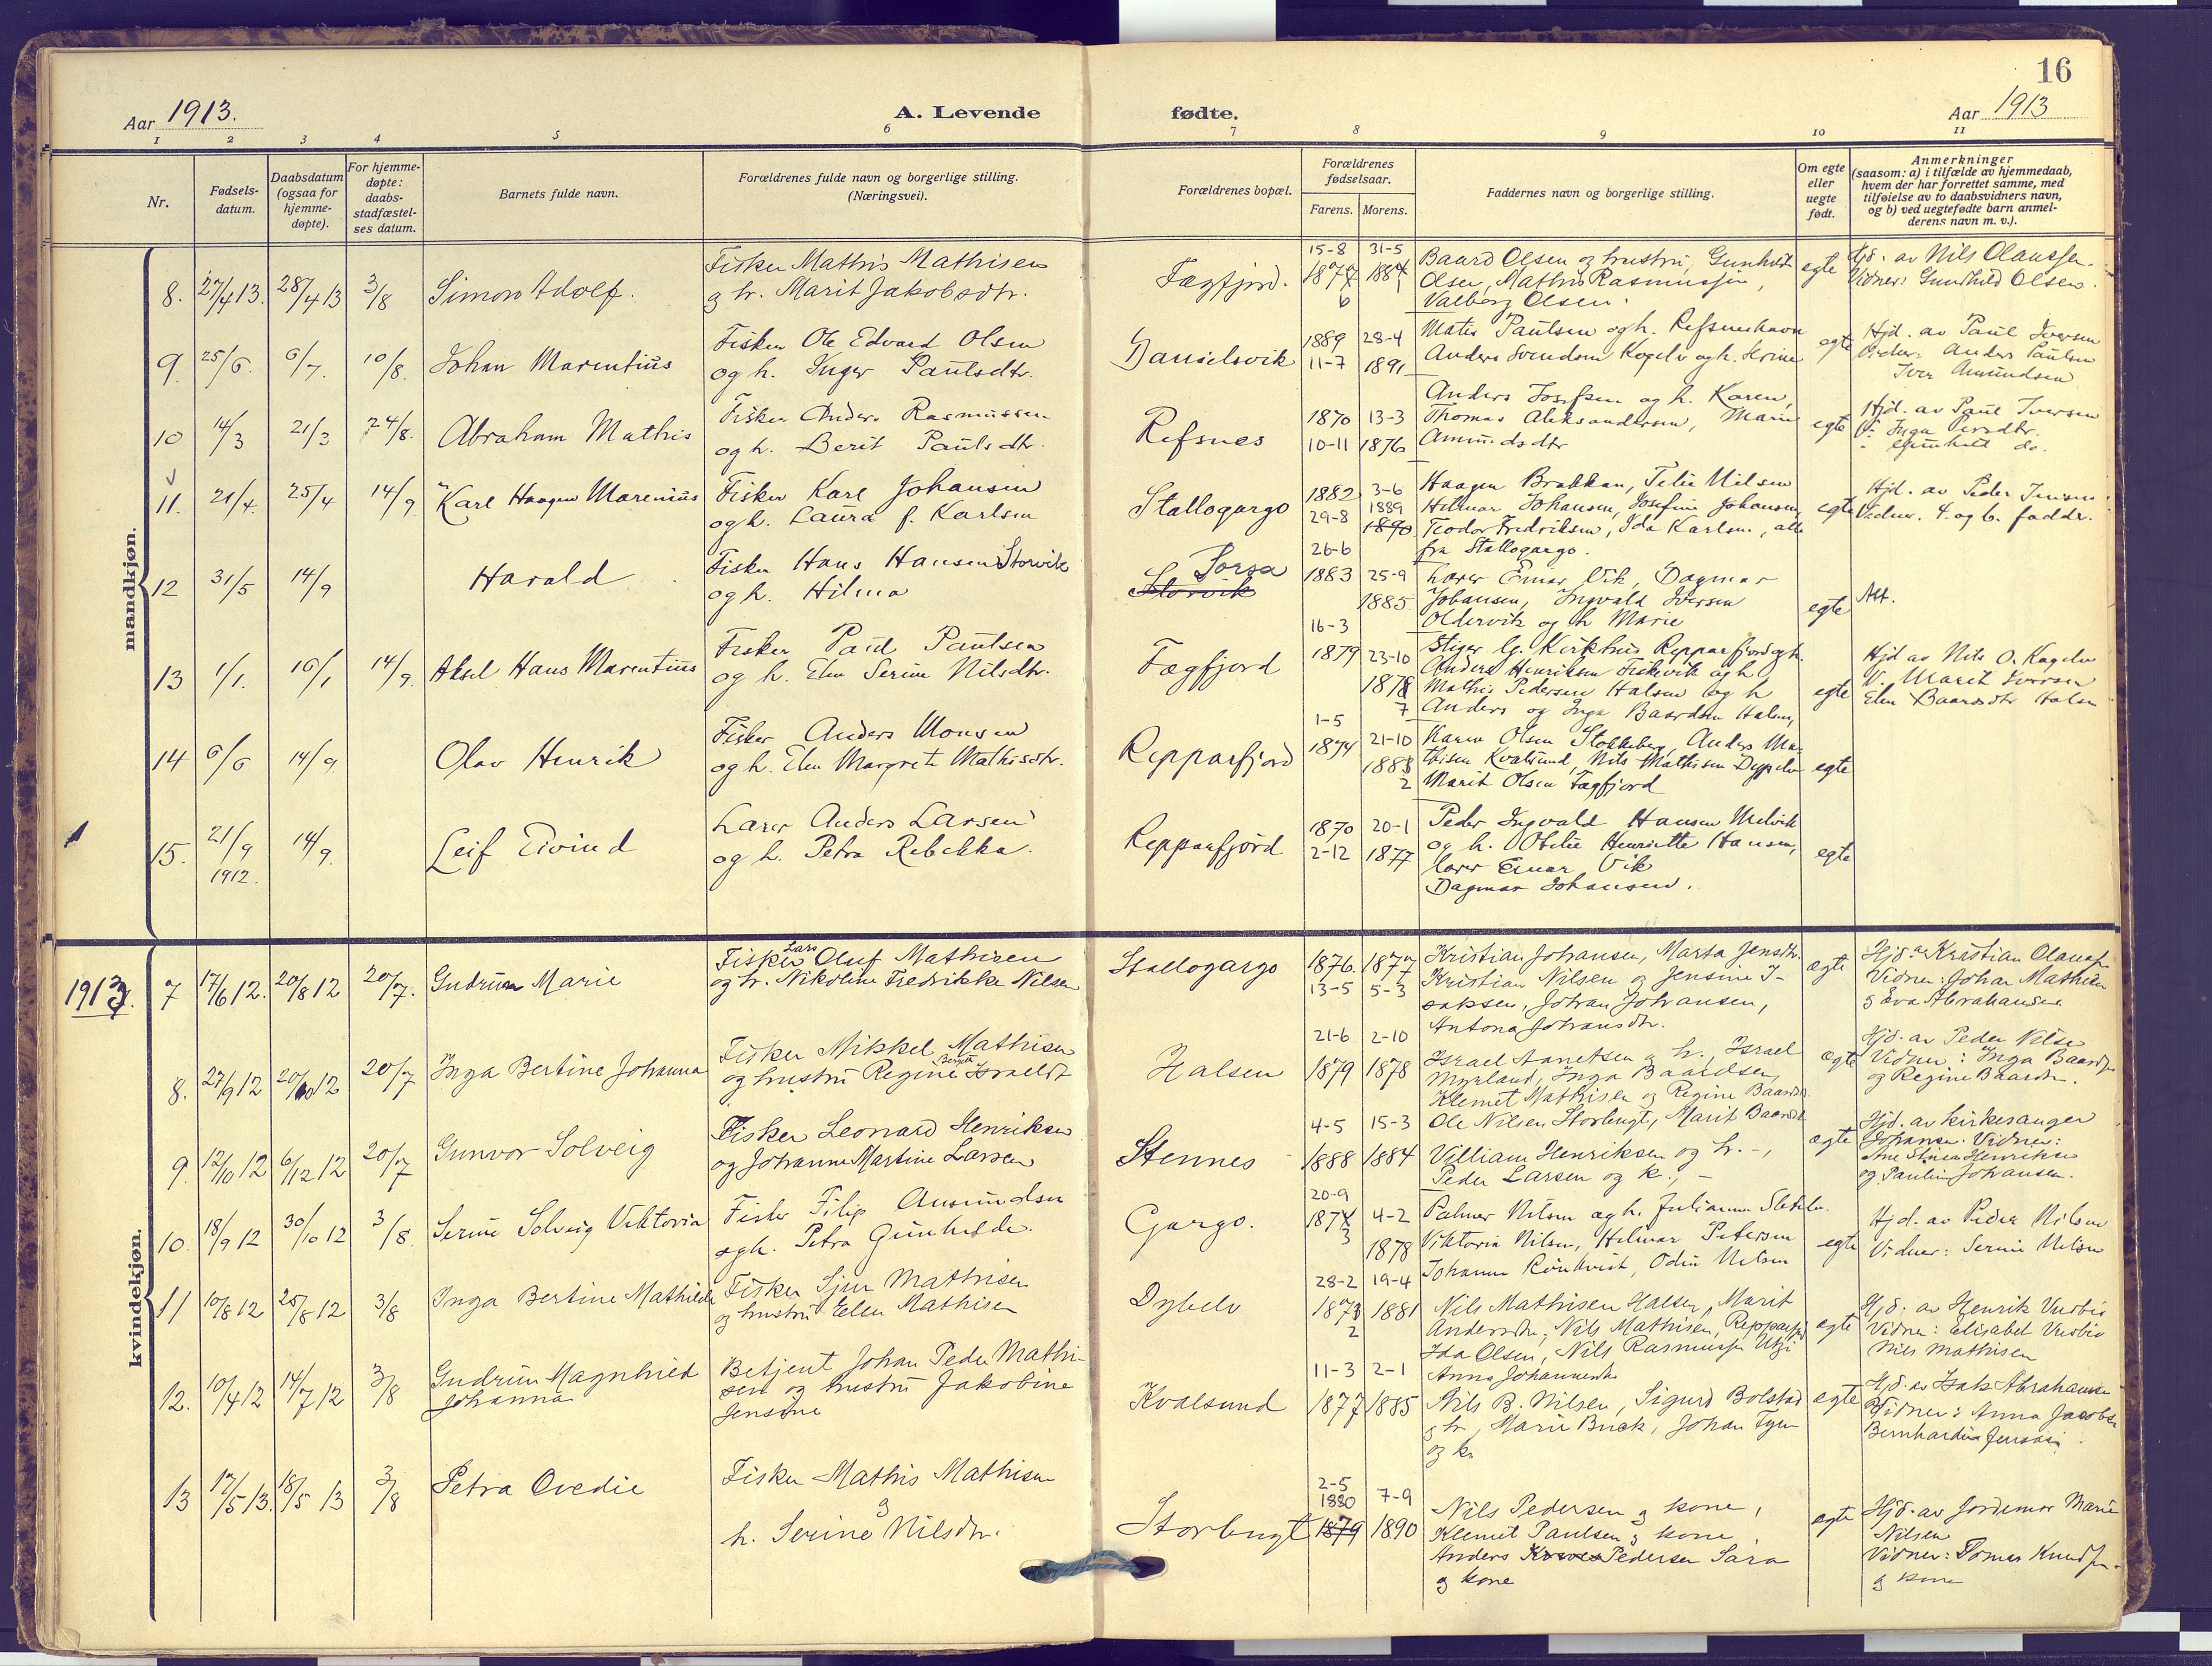 16
Aar 1913.
A. Levende
fødte.
Aar 1913
1 2 3 4 5 6 7 8 9 10 11
Nr.
Fødsels-
datum.
Daabsdatum
(ogsaa for
hjemme-
døpte).
For hjemme-
døpte:
daabs-
stadfæstel-
ses datum.
Barnets fulde navn.
Forældrenes fulde navn og borgerlige stilling.
(Næringsvei).
Forældrenes bopæl.
Forældrenes
fødselsaar.
Farens. Morens.
Faddernes navn og borgerlige stilling.
Om egte
eller
uegte
født.
Anmerkninger
(saasom: a) i tilfælde av hjemmedaab,
hvem der har forrettet samme, med
tilføielse av to daabsvidners navn,
og b) ved uegtefødte barn anmel-
derens navn m. v.).
mandkjøn.
8. 27/4 13. 28/4 13 3/8 Simon Adolf.
Fisker Mathis Mathisen
og hr. Marit Jakobsdtr.
Fægfjord.
15-8 31-5
187 188
6
Baard Olsen og hustru, Gunhild
Olsen, Mathis Rasmussen,
Valborg Olsen.
egte
Hjd. av Nils Olaussen.
Vidner: Gunhild Olsen.
9. 25/6. 6/7. 10/8. Johan Marentius
Fisker Ole Edvard Olsen
og h. Inger Paulsdtr.
Danielsvik
1889 28-4
11-7 1891
Mathis Paulsen og h. Refsneshavn
Anders Svendsen Kogelv og h. Serine
egte
Hjd. av Paul Iversen
Vidner: Anders Paulsen
Iver Amundsen
10 14/3 21/3 24/8. Abraham Mathis
Fisker Anders Rasmussen
og h. Berit Paulsdtr.
Refsnes
1870 13-3
10-11 1876
Anders Josefsen og h. Karen,
Thomas Aleksandersen, Marie
Amundsdtr
egte
Hjd. av Paul Iversen
V. Inga
Gunhild do.
11. 21/4. 25/4 14/9 Karl Haagen Marenius
Fisker Karl Johansen
og h. Laura f. Karlsen
Stallogargo
1882 3-6
29-8 1889
1890
Haagen Brakkan, Telie Nilsen
Hilmar Johansen, Josefine Johansen,
Teodor Fredriksen, Ida Karlsen, alle
fra Stallogargo.
egte
Hjd. av Peder Jensen
Vidner. 4. og 6. fadder.
12 31/5 14/9 Harald
Fisker Hans Hansen Storvik
og h. Hilma
Sorsa
Storvik
26-6
1883 25-9
1885
Lærer Einar Vik, Dagmar
Johansen, Ingvald Iversen
Oldervik og h Marie
egte
Att.
13 1/1. 16/1 14/9. Aksel Hans Marentius
Fisker Paul Paulsen
og h. Elen Serine Nilsdtr.
Fægfjord
16-3
1879 23-10
187
7
Stiger Kirkhus Repparfjord og h.
Anders Henriksen Fiskevik og h
Mathis Pedersen Halsen og h
Anders og Inga Baardsen Halsen,
egte
Hjd av Nils O. Kogelv
V. Marit Iversen
Elen Baardsdtr Halsen
14 6/6 14/9. Olav Henrik
Fisker Anders Monsen
og h. Elen Margrete Mathisdtr.
Repparfjord
1-5
1874 21-10
188
2
Karen Olsen Stokkeberg, Anders Ma-
thisen Kvalsund, Nils Mathisen Dypelv
Marit Olsen Fægfjord
egte
15. 21/9 1912. 14/9. Leif Eivind
Lærer Anders Larsen
og h. Petra Rebekka.
Repparfjord
1870 20-1
2-12 1877
Peder Ingvald Hansen Melvik
og h. Otelie Henriette Hansen,
lærer Einar Vik
Dagmar Johansen.
egte
kvindekjøn.
1913.
7 17/6 12. 20/8 12 20/7. Gudrun Marie
Fisker Lars Oluf Mathisen
og hr. Nikoline Fredrikke Nilsen
Stallogargo
1876. 1877
13-5 5-3
Kristian Johansen, Marta Jensdtr.
Kristian Nilsen og Jensine I-
saksen, Johan Johansen,
Antona Johansdtr.
egte
Hjd. av Kristian Olaussen
Vidner: Johan Mathisen
og Eva Abrahamsen
8. 27/9 12 20/10 12 20/7 Inga Bertine Johanna
Fisker Mikkel Mathisen
og hustru Regine Berith Israelsdt
Halsen
21-6 2-10
1879 1878
Israel Annetsen og h., Israel
Myrland, Inga Baardsen,
Klemet Mathisen og Regine Baardsd
Ole Nilsen Storbugt, Marit Baardsd
egte
Hjd. av Peder Nilsen
Vidner: Inga Baardsen
og Regine Baardsen.
9. 12/10 12 6/12 12 20/7 Gunvor Solveig
Fisker Leonard Henriksen
og Johanne Martine Larsen
Stennes
4-5 15-3
1888 1884
Villiam Henriksen og h. -,
Peder Larsen og k., -
egte
Hjd. av kirkesanger
Johansen. Vidner:
Ane Stina Henriksen
og Pauline Johansen.
10. 18/9 12 30/10 12 3/8 Serine Solveig Viktoria
Fisker Filip Amundsen
og h. Petra Gunhilde.
Gargo.
20-9
187 4-2
3 1878
Palmer Nilsen og h. Julianne
Viktoria Nilsen, Helmar Petersen
Johanne Rundkvist, Odin Nilsen
egte
Hjd. av Peder Nilsen
Vidner: Serine Nilsen
11 10/8 12 25/8 12 3/8 Inga Bertine Mathilde
Fisker Sjur Mathisen
og hustru Ellen Mathisen
Dybelv
28-2 19-4
187 1881
2
Nils Mathisen Halsen, Marit
Andersdtr., Nils Mathisen, Repparfjord
Ida Olsen, Nils Rasmussen Utzi
Anna Johannesdtr
egte
Hjd. av Henrik Vuobis
Vidner: Elisabet Vuobis
Nils Mathisen
12. 10/4 12 14/7 12 3/8 Gudrun Magnhild
Johanna
Betjent Johan Peder Mathi-
sen og hustru Jakobine
Jensine
Kvalsund
11-3 2-1
1877 1885
Nils B. Nilsen, Sigurd Bolstad
og hr, Marie Buck, Johan
og k.
egte
Hjd. av Isak Abrahamsen
Vidner: Anna Jacobsen
Bernhardine Jenssen.
13 17/5 13. 18/5 13 3/8 Petra Ovedie
Fisker Mathis Mathisen
og
h. Serine Nilsdtr.
Storbugt
2-5
1880 7-9
1879 1890
Nils Pedersen og kone,
Klemet Paulsen og kone
Anders Pedersen Sara
og kone
egte
Hjd. av Jordemor Marie
Nilsen
Vidner: Tomas Knudsen
og kone